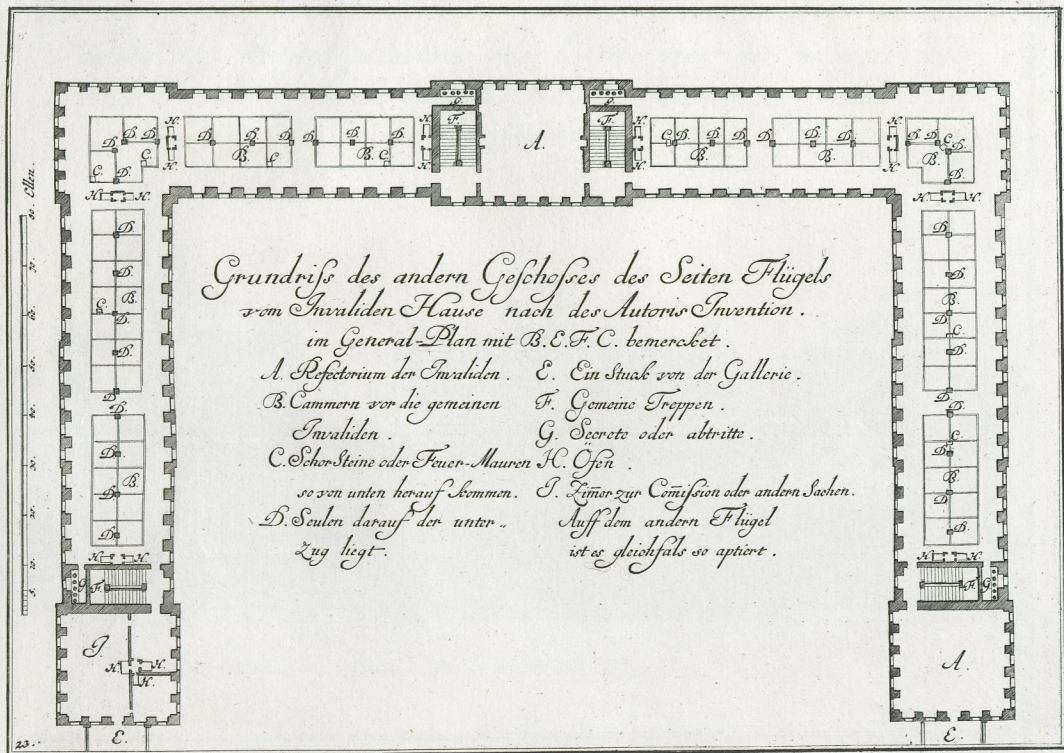 Grundriss des andern Geschosses des Seiten Flügels
vom Invaliden Hause nach des Autoris Invention.
im General-Plan mit B.E.F.C. bemercket.
A. Refectorium der Invaliden.
B. Cammern vor die gemeinen
Invaliden.
C. SchorSteine oder Feuer-Mauren
so von unten herauf kommen.
D. Seulen darauf der unter„
Zug liegt.
E. Ein Stuck von der Gallerie.
F. Gemeine Treppen.
G. Secrete oder abtritte.
H. Öfen.
J. Zim̄er zur Com̄ission oder andern Sachen.
Auff dem andern Flügel
ist es gleichfals so aptiert.
Ellen.
23.